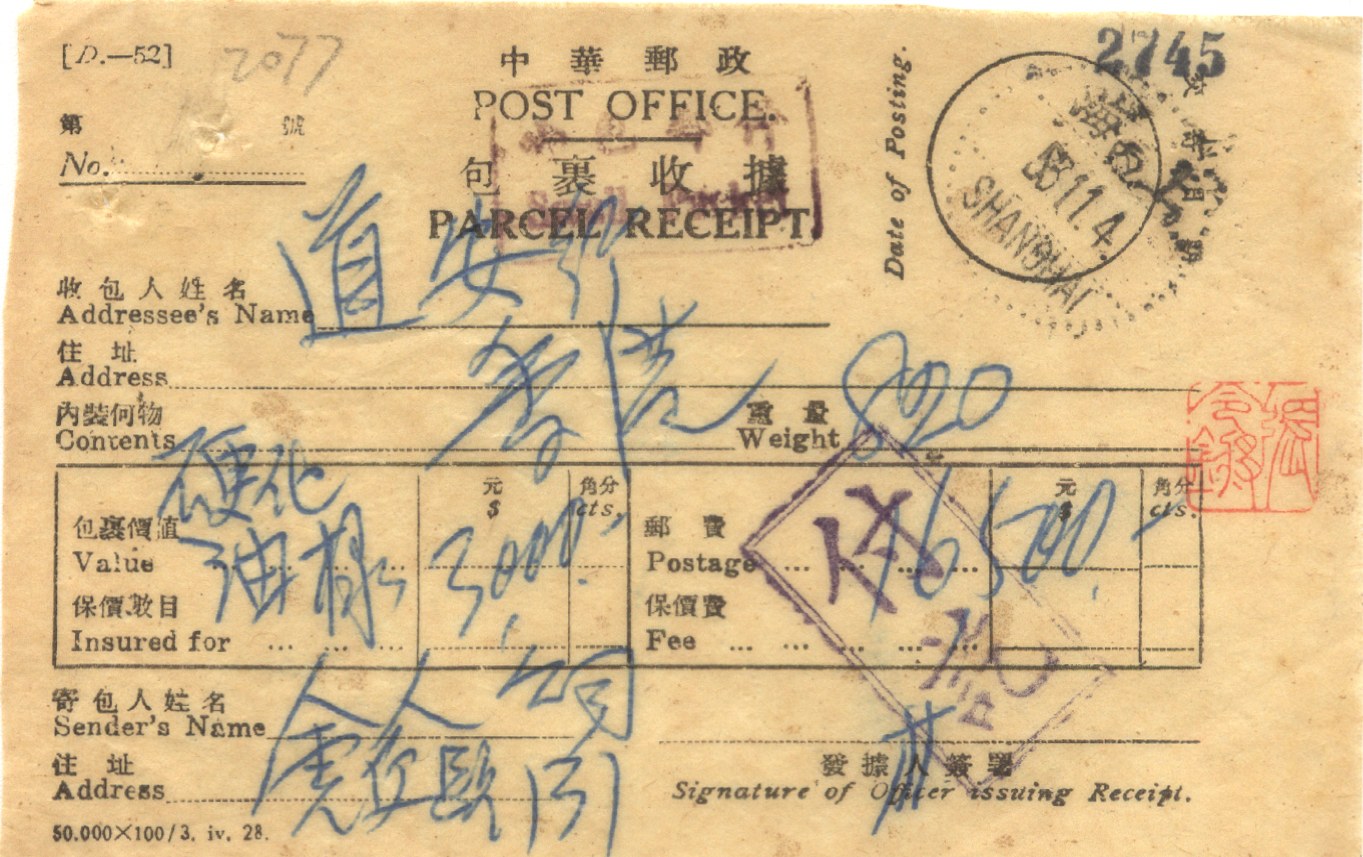 [D.—52]
2077
2745
中華郵政
POST OFFICE.
第 號
No.
包裹收據
PARCEL RECEIPT.
Small Packet
Date of Posting.
上海
53.11.4
SHANGHAI
道安
收包人姓名
Addressee's Name
住址
Address
香港
內裝何物
Contents
硬化
油樣
重量
Weight 820
元 角分 元 角分
$ cts. $ cts.
包裹價值 郵費
Value 3,000.- Postage 16500.-
保價數目 保價費
Insured for Fee
付訖
寄包人姓名
Sender's Name
住址
Address
發據人簽署
Signature of Officer issuing Receipt.
50.000×100/3. iv. 28.